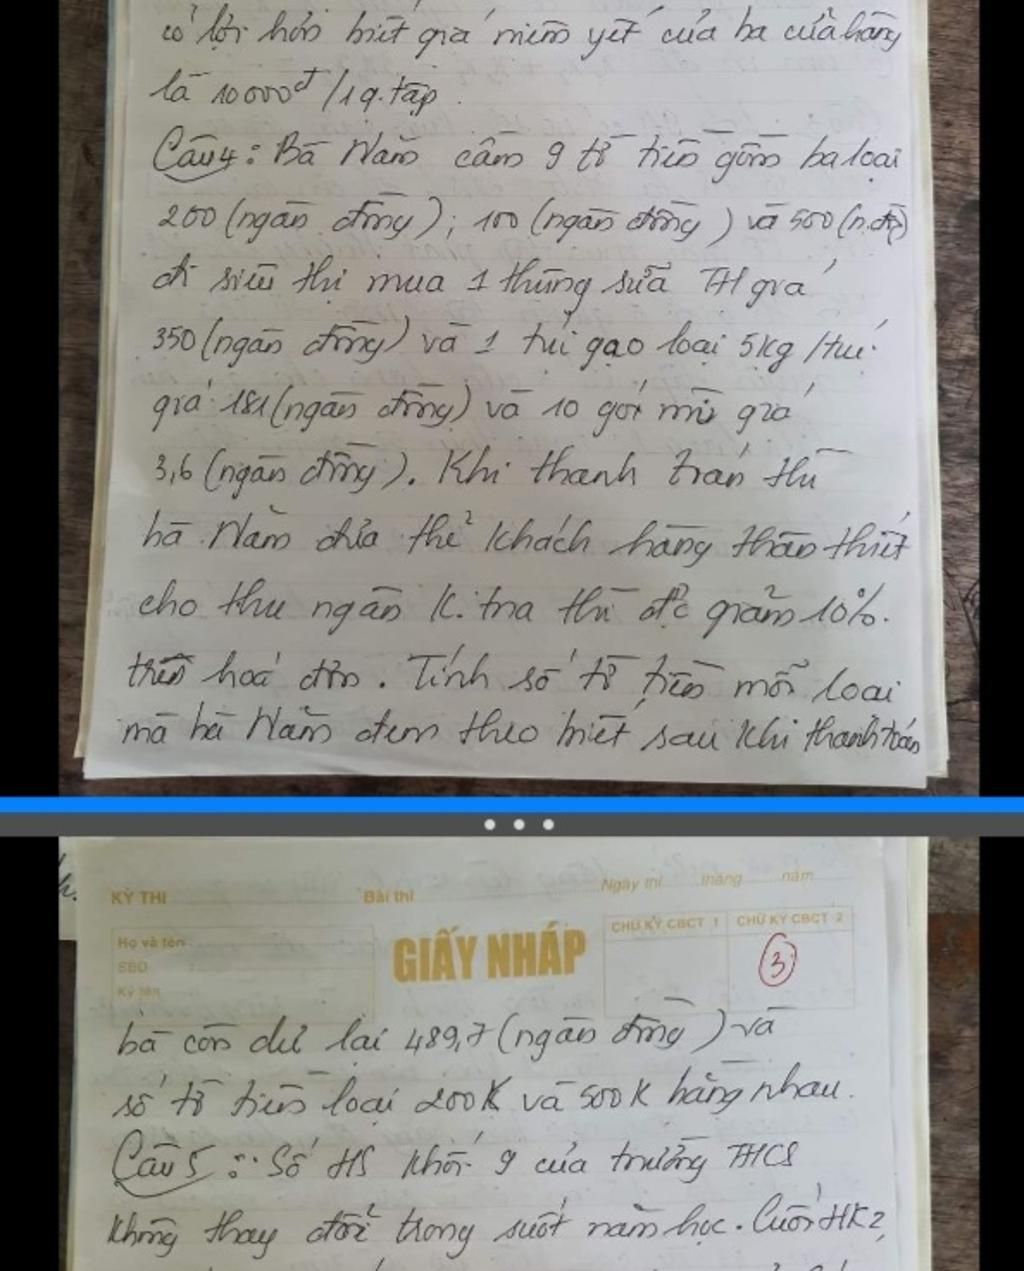 có lợi hơn biết giá niêm yết của ba cửa hàng
là 10000đ/1q.tập.
Câu 4: Bà Năm cầm 9 tờ tiền gồm ba loại
200 (ngàn đồng); 100 (ngàn đồng) và 500 (n.đồ)
đi siêu thị mua 1 thùng sữa TH giá
350 (ngàn đồng) và 1 túi gạo loại 5kg/túi
giá 181 (ngàn đồng) và 10 gói mì giá
3,6 (ngàn đồng). Khi thanh toán thì
bà Năm đưa thẻ khách hàng thân thiết
cho thu ngân k.tra thì đc giảm 10%.
trên hoá đơn. Tính số tờ tiền mỗi loại
mà bà Năm đem theo biết sau khi thanh toán
KỲ THI Bài thi Ngày thi tháng năm
Họ và tên
SBD
Ký tên
GIẤY NHÁP
CHỮ KÝ CBCT 1 CHỮ KÝ CBCT 2
3
bà còn dư lại 489,7 (ngàn đồng) và
số tờ tiền loại 200K và 500K bằng nhau.
Câu 5: Số HS khối 9 của trường THCS
không thay đổi trong suốt năm học. Cuối HK2,